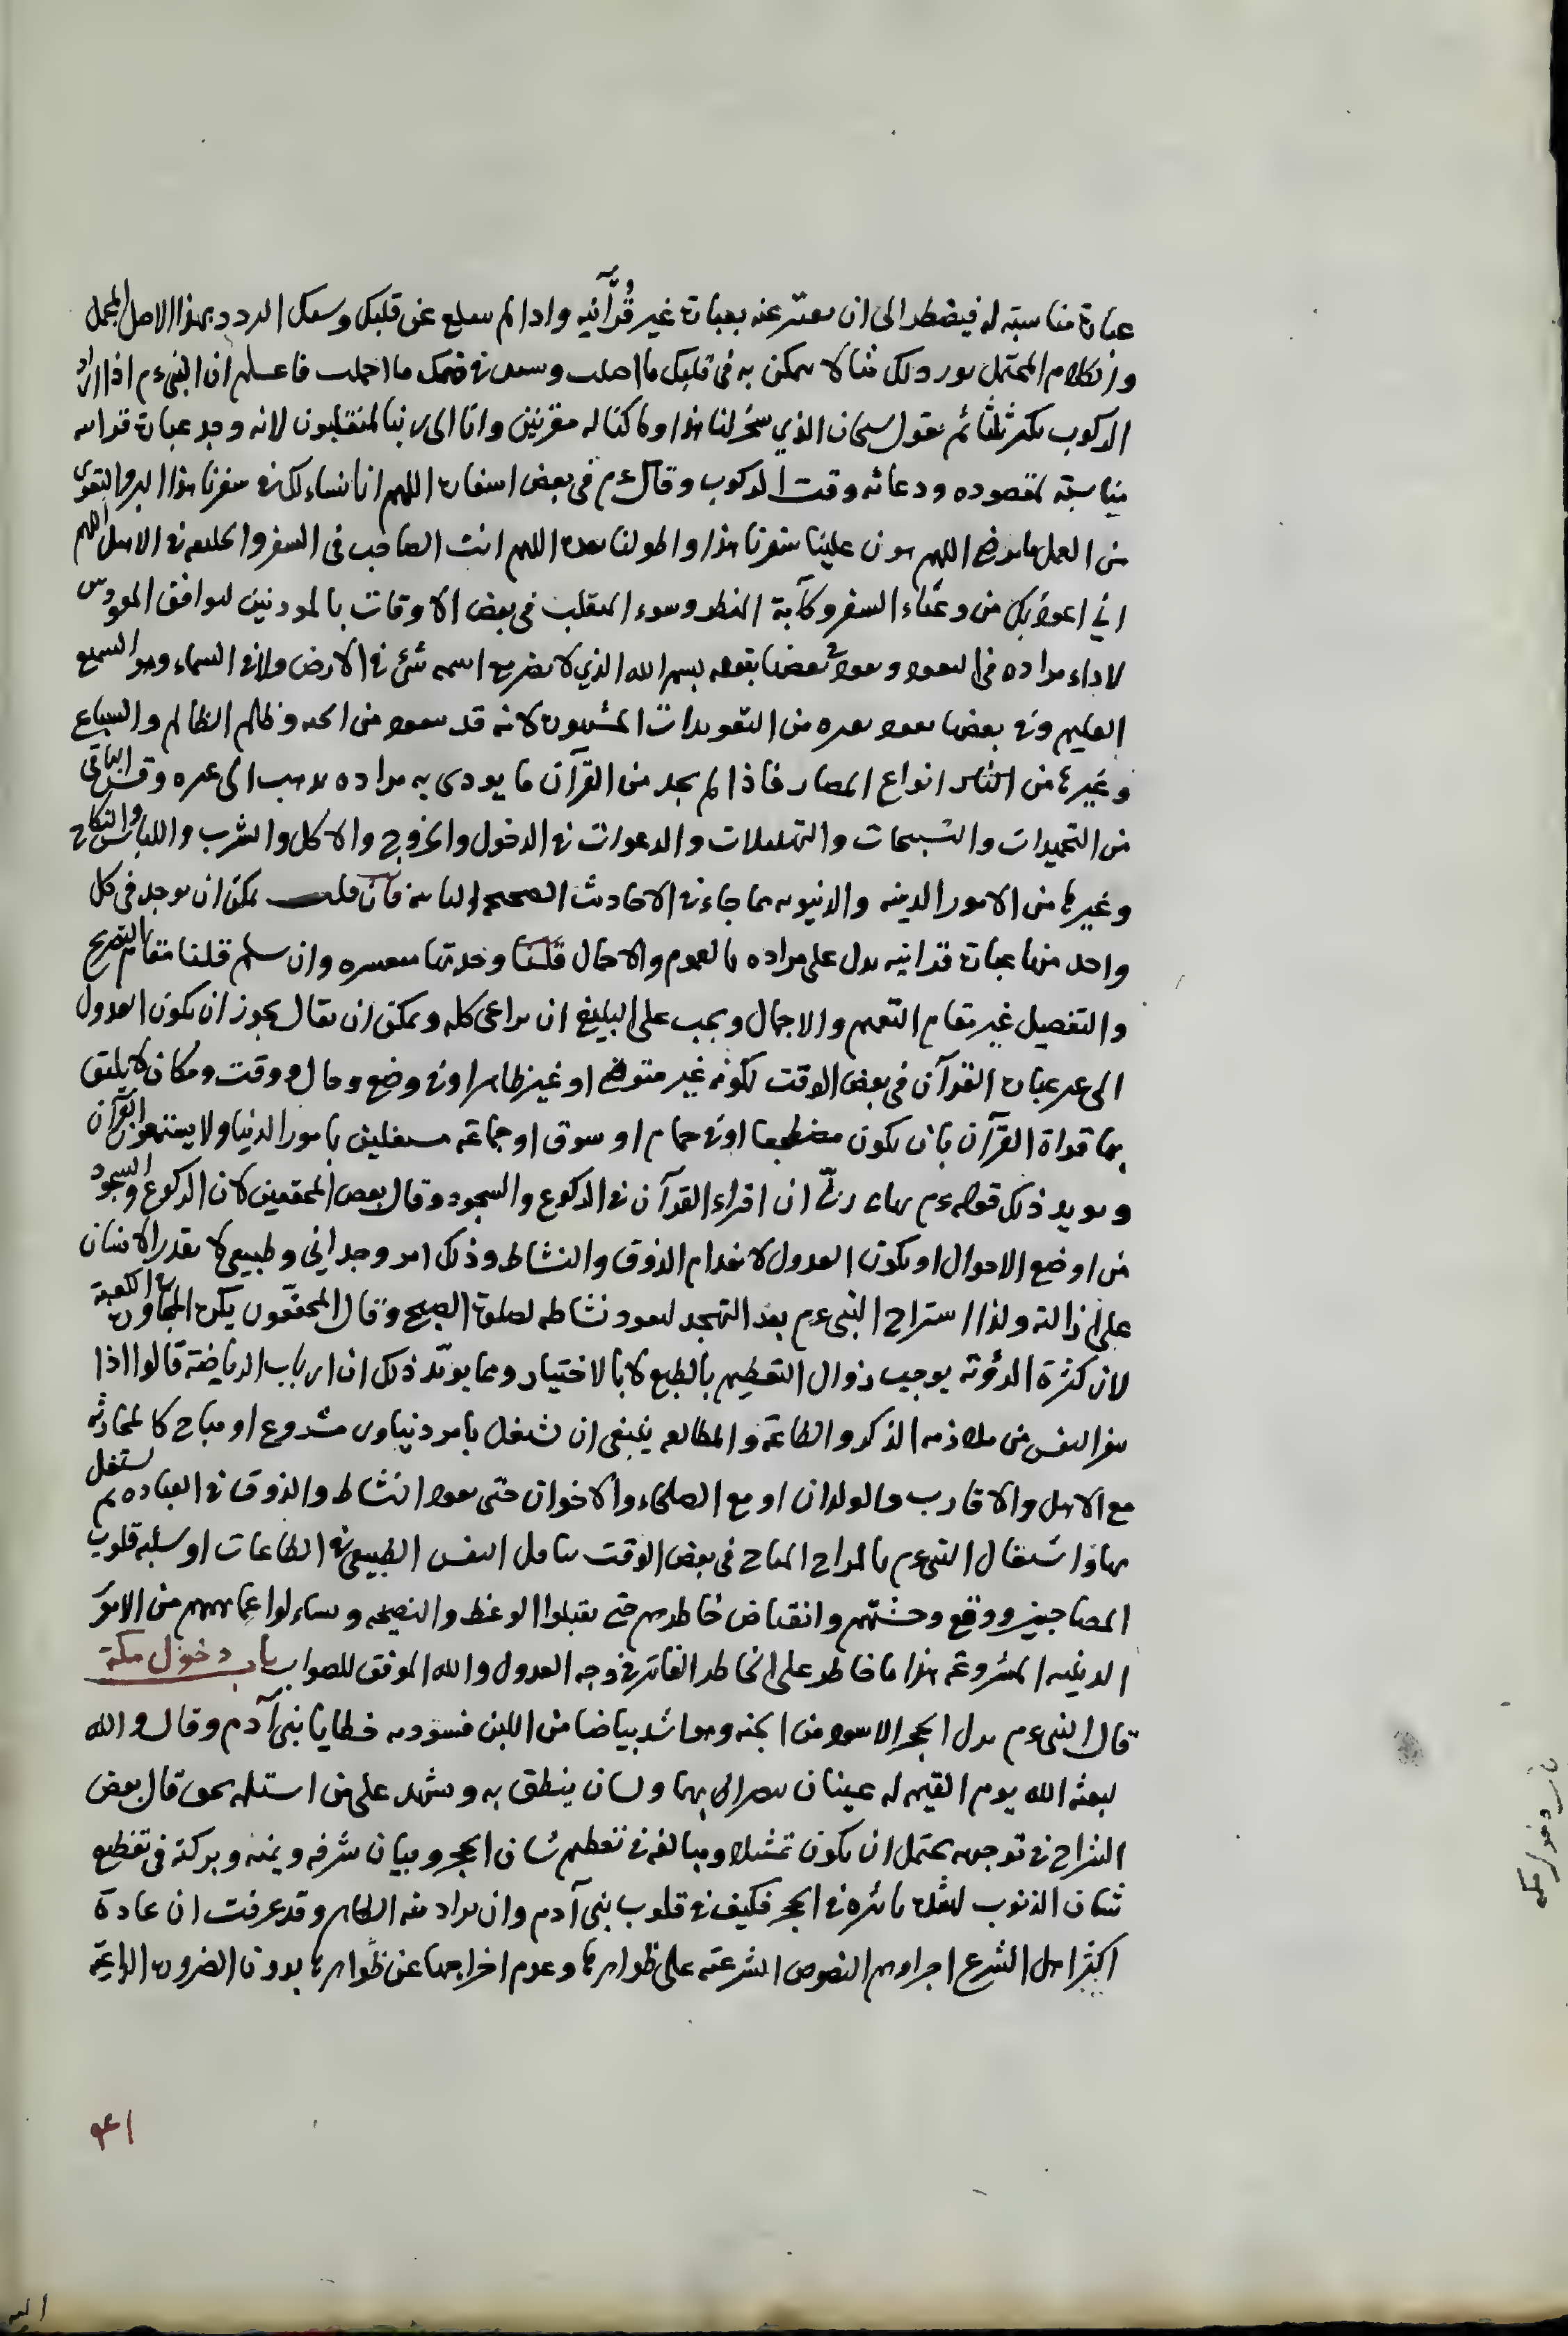 عبارة مناسبة له فيضطر الى ان يعبّر عنه بعبارة غير قُرآنيه واذا لم ينقلع عن قلبك وسعك التردد بهذا الاصل المجمل
والكلام المحتمل نورد لك مثالا يتمكن به في قلبك ما اصلت ويستقر في فهمك ما اجملت فاعلم ان النبي ءم اذا اراد
الركوب يكبر ثلثا ثم يقول سبحان الذي سخر لنا هذا وما كنا له مقرنين وانا الى ربنا لمنقلبون لانه وجد عبارة قرآنيه
مناسبة لمقصوده ودعائه وقت الركوب وقال ءم في بعض اسفاره اللهم انا نساءلك في سفرنا هذا البر والتقوى
من العمل ما ترضى اللهم هون علينا سفرنا هذا واطو لنا بعده اللهم انت الصاحب في السفر والخليفه في الاهل اللهم
اني اعوذ بك من وعثاء السفر وكآبة المنظر وسوء المنقلب في بعض الاوقات بالمعوذتين لتوافق المعوذتين
لاداء مراده في التعوذ ويعوذ في بعضها بقوله بسم الله الذي لا يضر مع اسمه شئ في الارض ولا في السماء وهو السميع
العليم وفي بعضها يعوذ بغيره من التعويذات المشهورة لانه قد يعوذ من الجن وظلم الظالم والسباع
وغيرها من انواع المضار فاذا لم يجد من القرآن ما يودى به مراده يذهب الى غيره وقس الباقى
من التحميدات والتسبيحات والتهليلات والدعوات في الدخول والخروج والاكل والشرب واللباس والنكاح
وغيرها من الامور الدينيه والدنيويه مما جاء في الاحاديث الصحيحه فان قلت يمكن ان يوجد في كل
واحد منها عبارة قرآنيه يدل على مراده بالعموم والاجمال قلنا وجدتها متعسره وان سلم قلنا مقام التصريح
والتفصيل غير مقام التعميم والاجمال ويجب على البليغ ان يراعى كله ويمكن ان يقال يجوز ان يكون العدول
الى غير عبارة القرآن في بعض الاوقت لكونه غير متوضئ او غير طاهر او في وضع وحال ووقت ومكان لا يليق
بها قراءة القرآن بان يكون مضطجعا او في حمام او سوق او جماعة مشغلين بامور الدنيا ولا يستمعون القرآن
ويويد ذلك قوله ءم نهاني ربّى ان اقراء القرآن في الركوع والسجود وقال بعض المحققين لان الركوع والسجود
من اوضع الاحوال او يكون العدول لانعدام الذوق والنشاط وذلك امر وجداني وطبيعى لا يقدر الانسان
على ازالته ولذا استراح النبي ءم بعد التهجد ليعود نشاطه لصلوة الصبح وقال المحققون يكره المجاورة مع الكعبة
لان كثرة الرؤية يوجب زوال التعظيم بالطبع لا بالاختيار ومما يويّد ذلك ان ارباب الرياضة قالوا اذا
نفر النفس من ملازمه الذكر والطاعة والمطالعه ينبغى ان يشغل بامر دنياوى مشروع او مباح كالمحادثه
مع الاهل والاقارب والولدان او مع الصلحاء والاخوان حتى يعود النشاط والذوق في العباده ثم يستغل
بها واشتغال النبي ءم بالمزاح المباح في بعض الوقت النفس الطبيعى في الطاعات او تسليه قلوب
المصاحبين ورفع وحشتهم وانقباض خاطرهم حتى يقبلوا الوعظ والنصيحه ويساءلوا عما من الامور
الدينيه المشروعة هذا ما خاطر على الخاطر الفاتر في وجه العدول والله الموفق للصواب باب دخول مكة
قال النبي ءم نزل الحجر الاسود من الجنه وهو اشد بياضا من اللبن فسودته خطايا بنى آدم وقال والله
ليبعثه الله يوم القيمه له عينان بهما ولسان ينطق به ويشهد على من استلمه بحق قال بعض
الشراح في توجيهه يحتمل ان يكون تمثيلا ومبالغه في تعظيم شان الحجر وبيان شرفه ويمنه وبركته في تفظيع
شان الذنوب تاثيره في الحجر فكيف في قلوب بنى آدم وان يراد منه الظاهر وقد عرفت ان عادة
اكثر اهل الشرع اجراءهم النصوص الشرعية على ظواهرها وعدم اخراجها عن ظواهرها بدون الضرورة الداعية
٤١
باب دخول مكه